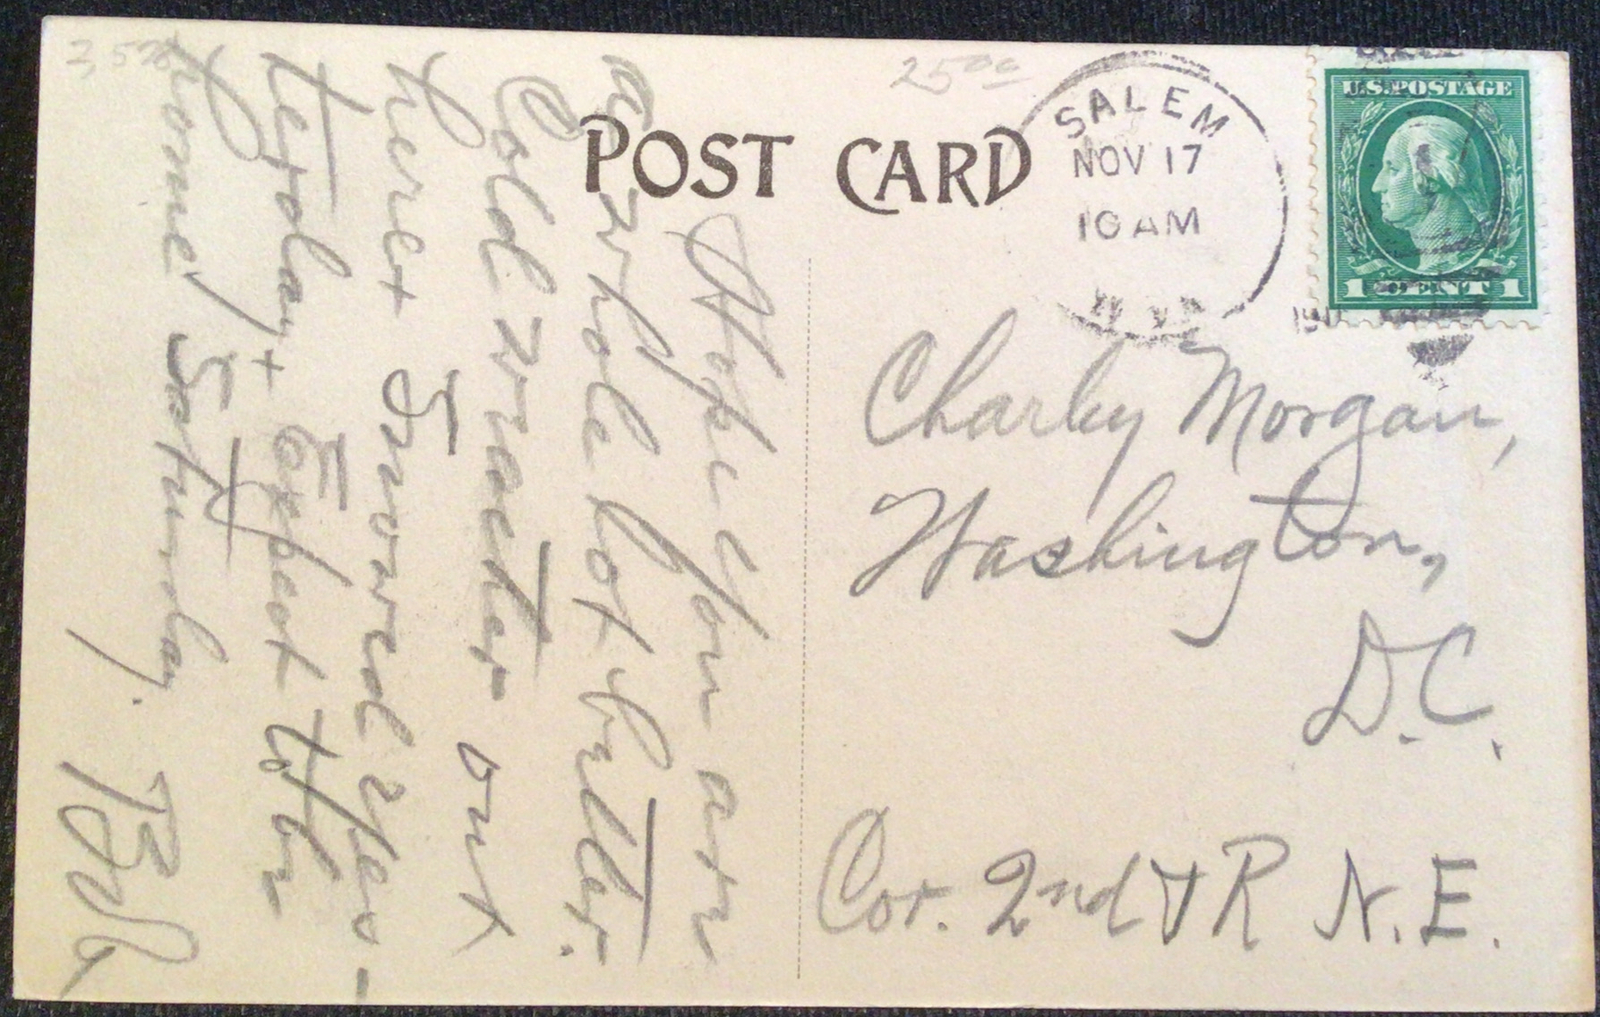 25⁰⁰
POST CARD
SALEM
NOV 17
10 AM
W. VA
U.S. POSTAGE
1 CENT 1
Hope you are
a whole lot better.
Cold weather out
here + snowed yes-
terday + expect to be
home Saturday.
Bob
Charley Morgan,
Washington,
D.C.
Cor. 2nd & R N.E.